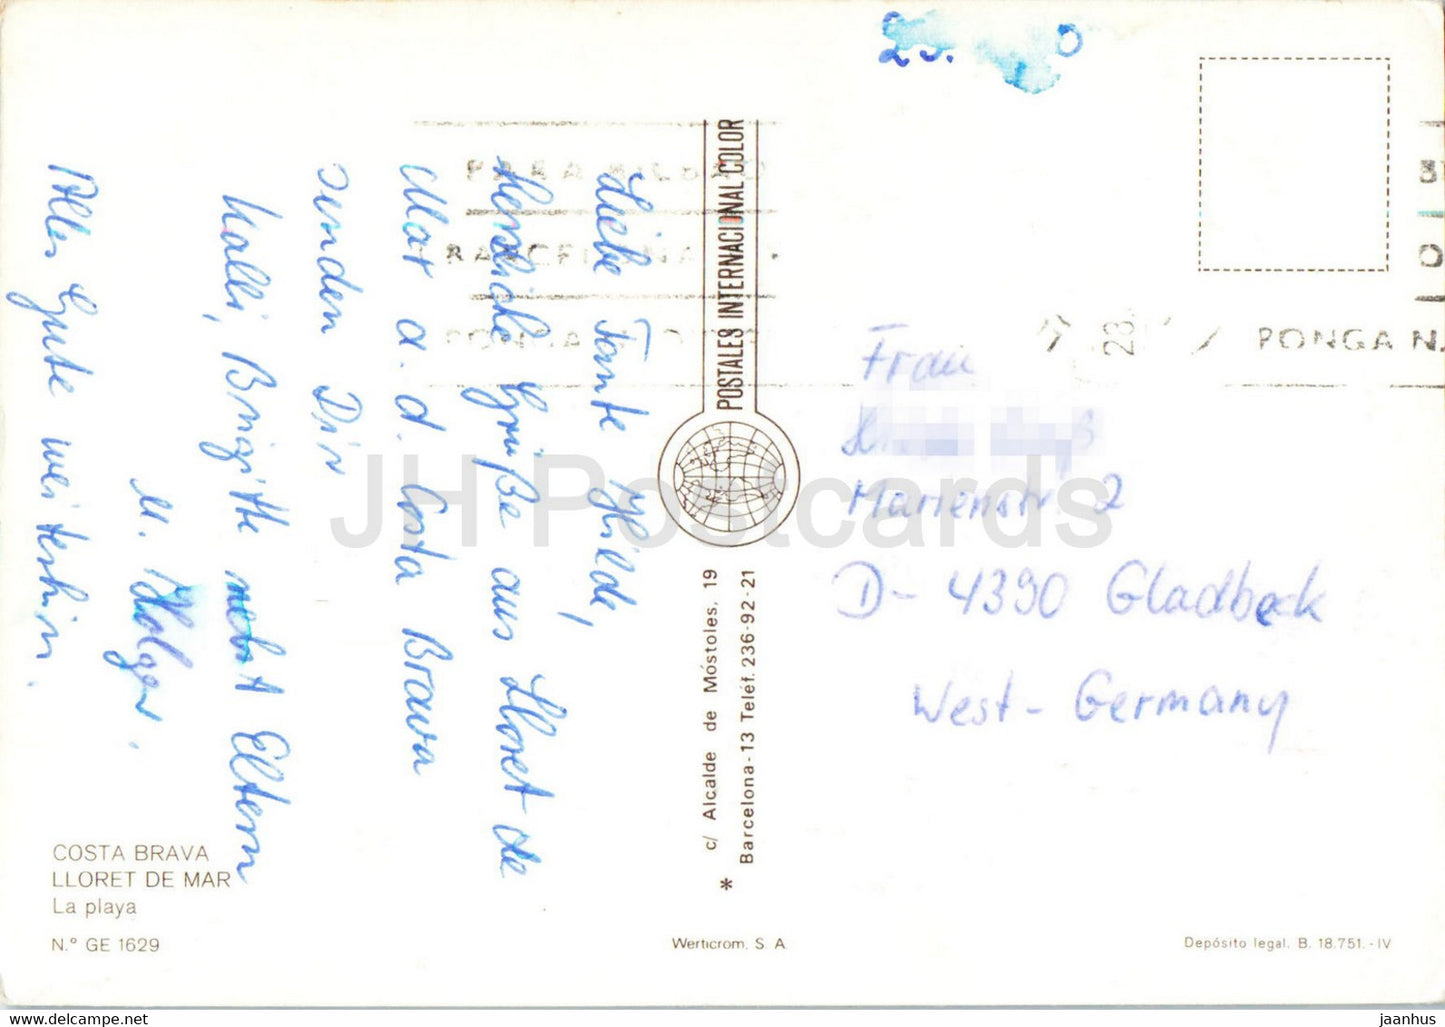 Liebe Tante Hilde,
Herzliche Grüße aus Lloret de
Mar a. d. Costa Brava
senden Dir
Kalli, Brigitte nebst Eltern
u. Holger.
Alles Gute weiterhin.
COSTA BRAVA
LLORET DE MAR
La playa
N.° GE 1629
POSTALES INTERNACIONAL COLOR
c/ Alcalde de Móstoles, 19
Barcelona-13 Teléf. 236-92-21
*
Werticrom, S. A.
Frau
Marienstr. 2
D-4390 Gladbeck
West-Germany
PONGA N.
Depósito legal. B. 18.751.-IV
JH Postcards
www.delcampe.net
jaanhus